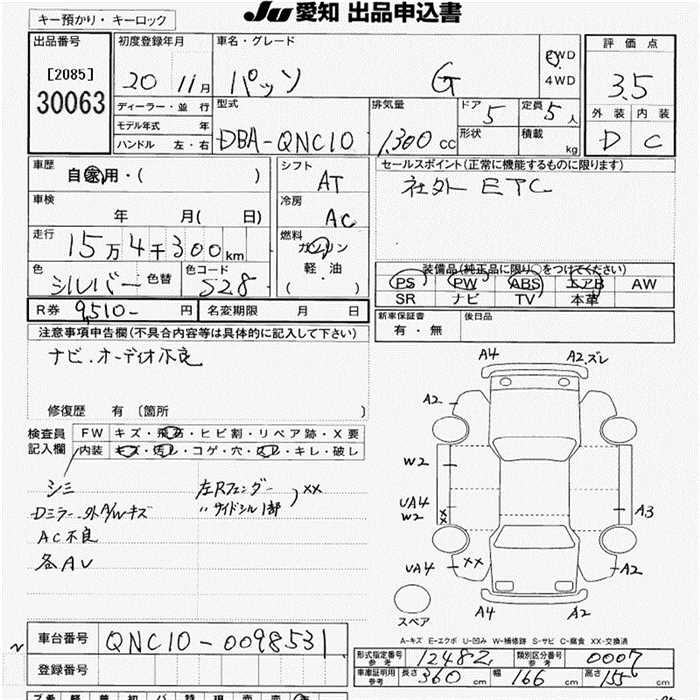 キー預かり・キーロック
JU 愛知 出品申込書
出品番号
[2085]
30063
初度登録年月
20 11月
車名・グレード
パッソ G
2WD
4WD
評価点
3.5
外装 内装
D C
ディーラー・並行
モデル年式 年
ハンドル 左・右
型式
DBA-QNC10
排気量
1.300 cc
ドア
5
形状
定員
5人
積載
kg
車歴
自家用・( )
車検
年 月( 日)
走行
15万4千300km
色
シルバー
色替
色コード
S28
シフト
AT
冷房
AC
燃料
ガソリン
軽・油
( )
セールスポイント(正常に機能するものに限ります)
社外 ETC
装備品(純正品に限り○をつけてください)
PS PW ABS エアB AW
SR ナビ TV 本革
R券 9,510- 円
名変期限 月 日
新車保証書
有・無
後日品
注意事項申告欄(不具合内容等は具体的に記入して下さい)
ナビ.オーディオ不良
修復歴 有 〔箇所 〕
検査員
記入欄
FW キズ・飛石・ヒビ割・リペア跡・X要
内装 キズ・汚レ・コゲ・穴・スレ・キレ・破レ
シミ
Dミラー.外A/Wキズ
AC不良
各AU
左Rフェンダー
〃サイドシル1部
XX
A4 A2.ズレ
A2
W2
UA4
W2
XX
A3
UA4 XX
A2
A4 A2
スペア
A-キズ E-エクボ U-凹み W-補修跡 S-サビ C-腐食 XX-交換済
車台番号
QNC10-0098531
登録番号
形式指定番号
参考
12482
類別区分番号
参考
0007
車庫証明用
参考
長さ 360 cm
幅 166 cm
高さ 155 cm